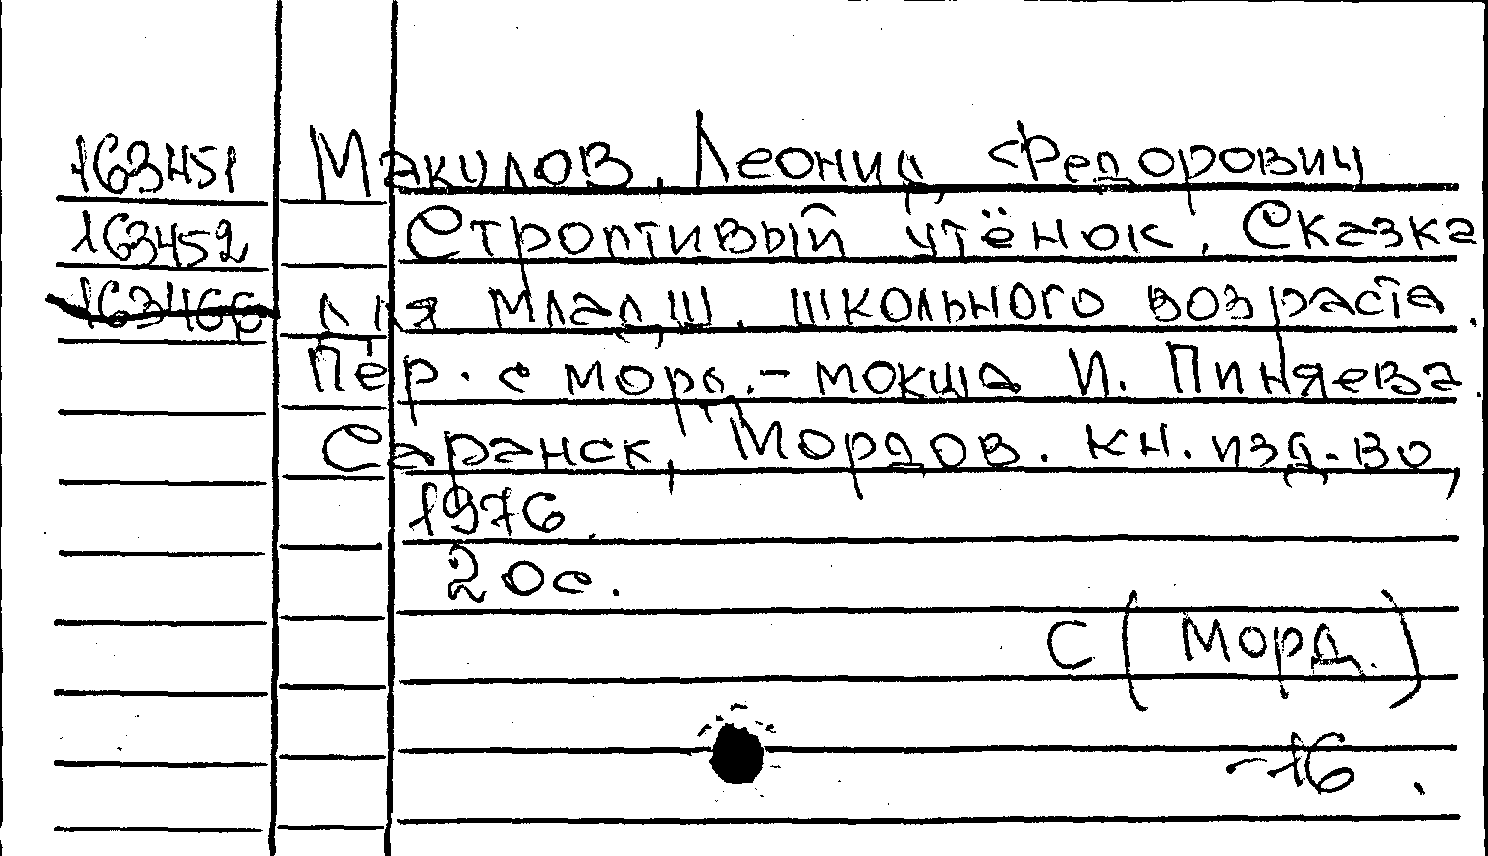 163451 Макулов, Леонид Федорович
163452 Строптивый утёнок. Сказка
163466 для младш. школьного возраста.
Пер. с морд.-мокша И. Пиняева.
Саранск, Мордов. кн. изд-во,
1976.
20с.
С (Морд.)
-16